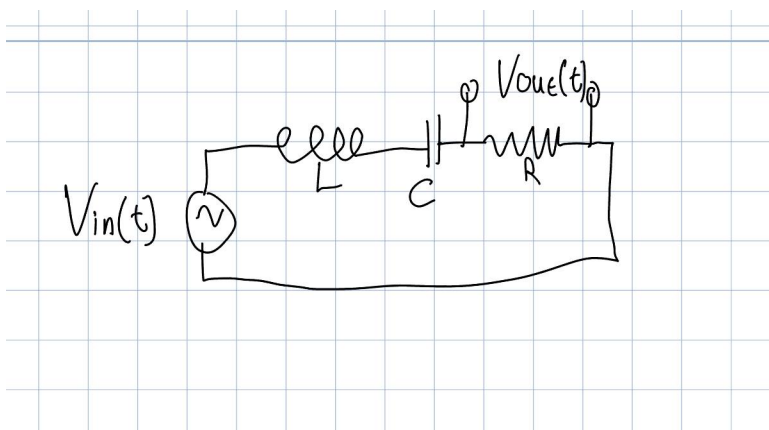 Vout(t)
L
C
R
Vin(t)